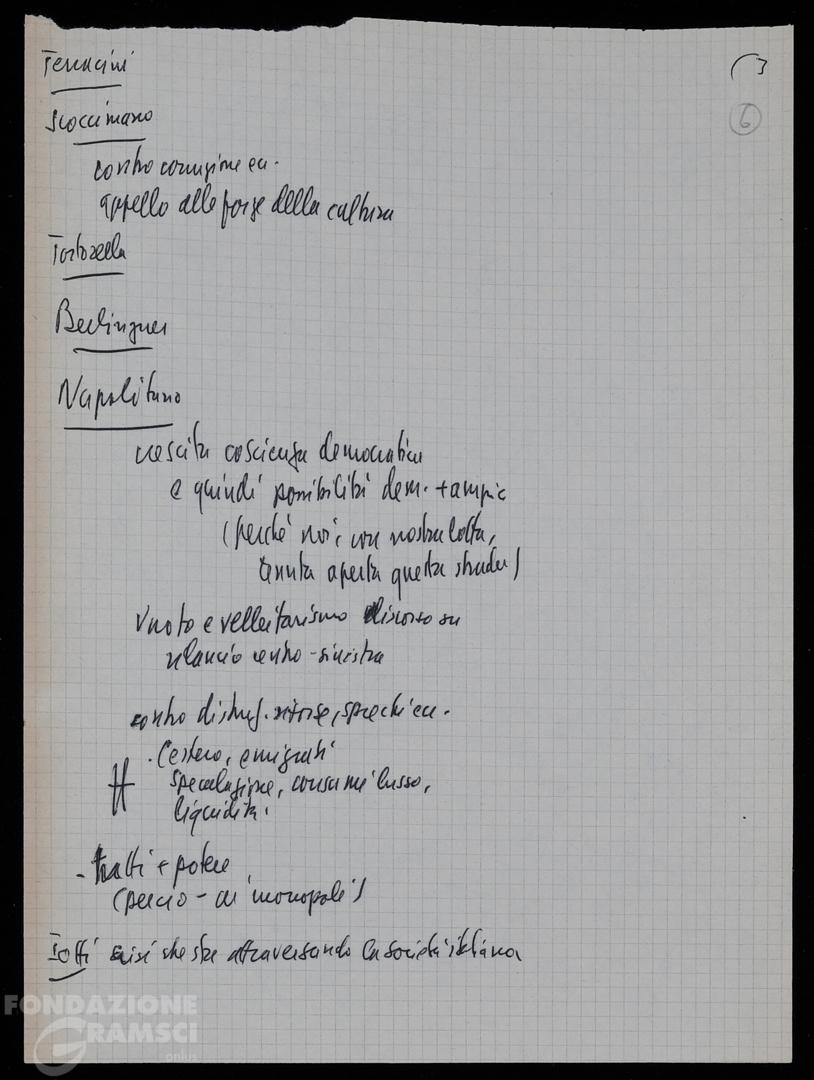 Terracini
(3
6
Scoccimarro
contro corruzione ecc.
appello alle forze della cultura
Tortorella
Berlinguer
Napolitano
crescita coscienza democratica
e quindi possibilità dem. + ampie
(perché noi, con nostra lotta,
tenuta aperta questa strada)
Vuoto e velleitarismo discorso su
rilancio centro-sinistra
contro distruz. risorse, sprechi ecc.
(estero, emigrati
speculazione, consumi lusso,
liquidità.
- tutti + potere
(perciò - ai monopoli)
Iotti crisi che sta attraversando la società italiana
FONDAZIONE
GRAMSCI
onlus